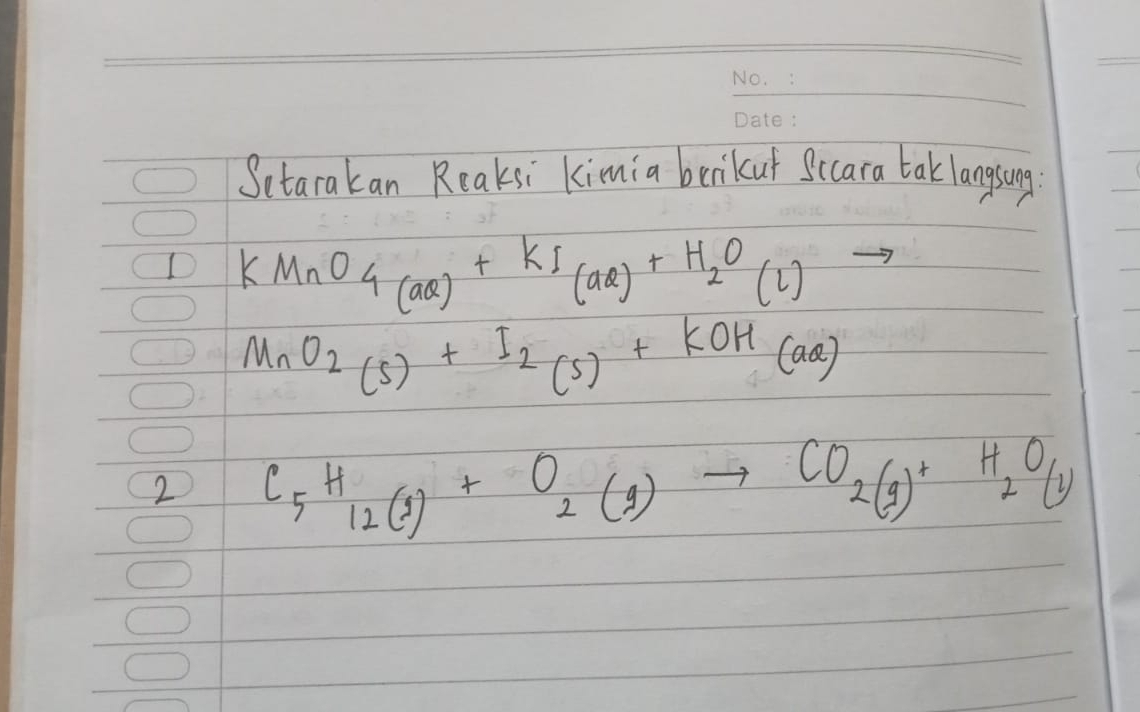 No. :
Date :
Setarakan Reaksi Kimia berikut Secara tak langsung:
1 KMnO4 (aq) + KI (aq) + H2O (l) →
MnO2 (s) + I2 (s) + KOH (aq)
2 C5H12 (g) + O2 (g) → CO2 (g) + H2O (l)